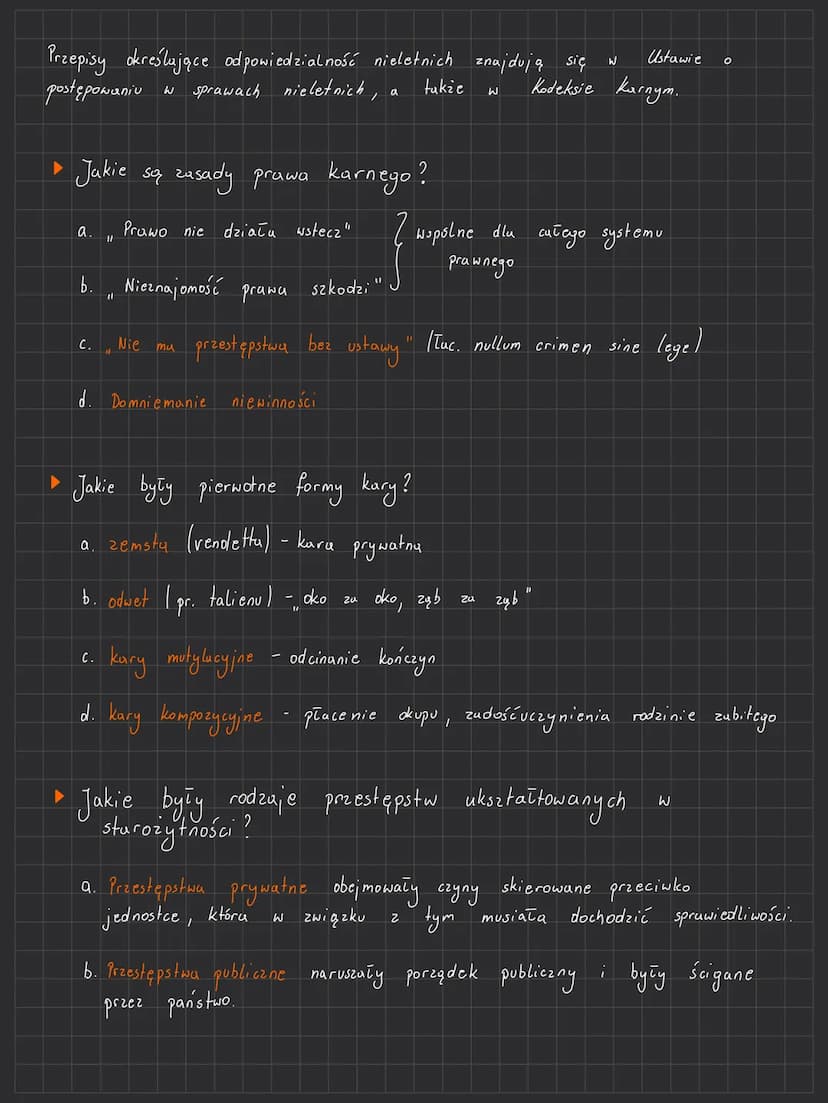 Przepisy określające odpowiedzialność nieletnich znajdują się w Ustawie o
postępowaniu w sprawach nieletnich, a także w Kodeksie Karnym.
Jakie są zasady prawa karnego?
a. „Prawo nie działa wstecz"
wspólne dla całego systemu
prawnego
b. „Nieznajomość prawa szkodzi"
c. „Nie ma przestępstwa bez ustawy" (łac. nullum crimen sine lege)
d. Domniemanie niewinności
Jakie były pierwotne formy kary?
a. zemsta (vendetta) - kara prywatna
b. odwet (pr. talienu) - „oko za oko, ząb za ząb"
c. kary mutylacyjne - odcinanie kończyn
d. kary kompozycyjne - płacenie okupu, zadośćuczynienia rodzinie zabitego
Jakie były rodzaje przestępstw ukształtowanych w
starożytności?
a. Przestępstwa prywatne obejmowały czyny skierowane przeciwko
jednostce, która w związku z tym musiała dochodzić sprawiedliwości.
b. Przestępstwa publiczne naruszały porządek publiczny i były ścigane
przez państwo.